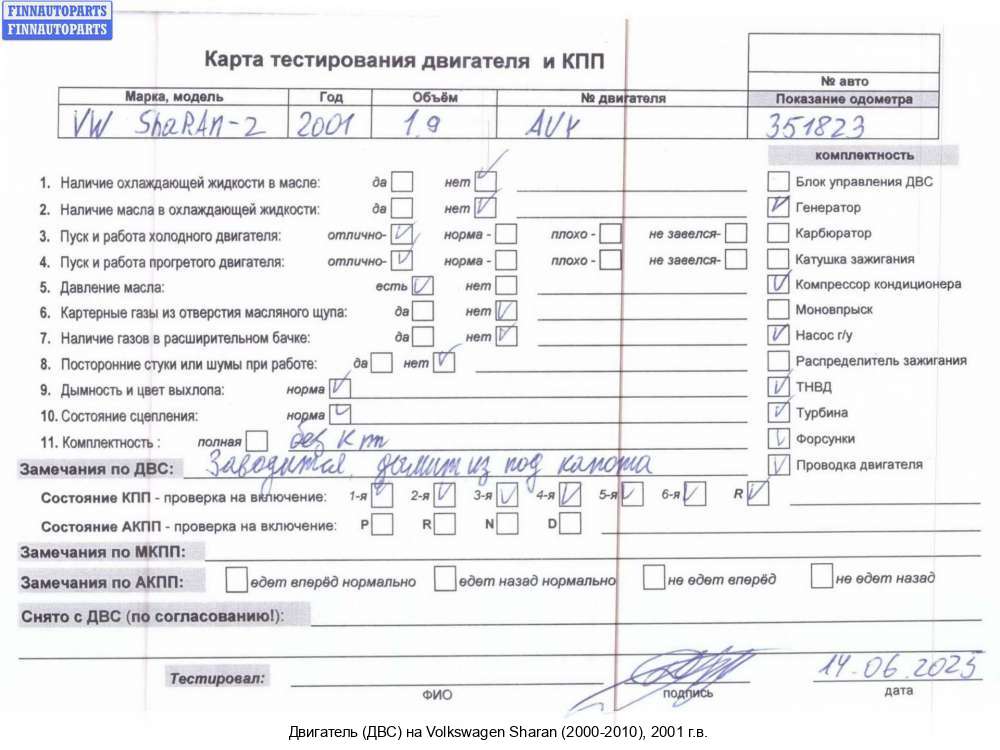 FINNAUTOPARTS
FINNAUTOPARTS
Карта тестирования двигателя и КПП
№ авто
Марка, модель Год Объём № двигателя Показание одометра
VW ShaRAn-2 2001 1.9 AUY 351823
комплектность
1. Наличие охлаждающей жидкости в масле: да нет Блок управления ДВС
2. Наличие масла в охлаждающей жидкости: да нет Генератор
3. Пуск и работа холодного двигателя: отлично- норма - плохо - не завелся- Карбюратор
4. Пуск и работа прогретого двигателя: отлично- норма - плохо - не завелся- Катушка зажигания
5. Давление масла: есть нет Компрессор кондиционера
6. Картерные газы из отверстия масляного щупа: да нет Моновпрыск
7. Наличие газов в расширительном бачке: да нет Насос г/у
8. Посторонние стуки или шумы при работе: да нет Распределитель зажигания
9. Дымность и цвет выхлопа: норма ТНВД
10. Состояние сцепления: норма Турбина
11. Комплектность : полная без кпп Форсунки
Замечания по ДВС: Заводится, дымит из под капота Проводка двигателя
Состояние КПП - проверка на включение: 1-я 2-я 3-я 4-я 5-я 6-я R
Состояние АКПП - проверка на включение: P R N D
Замечания по МКПП:
Замечания по АКПП: едет вперёд нормально едет назад нормально не едет вперёд не едет назад
Снято с ДВС (по согласованию!):
Тестировал: 14.06.2025
ФИО подпись дата
Двигатель (ДВС) на Volkswagen Sharan (2000-2010), 2001 г.в.